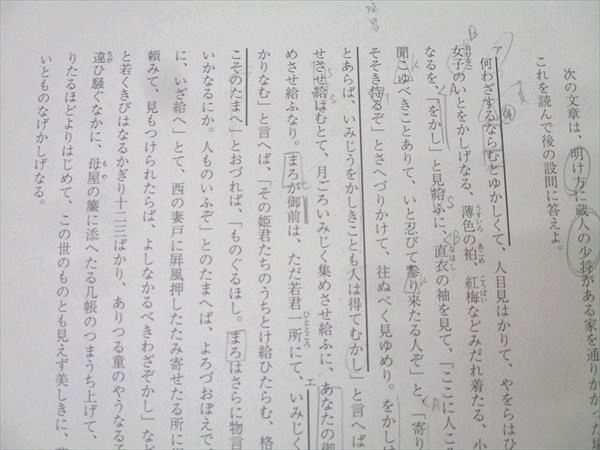 次の文章は、明け方に蔵人の少将がある家を通りかかった場
これを読んで後の設問に答えよ。
ア 何わざするならむとゆかしくて、人目見はかりて、やをらはひ
女子のいとをかしげなる、薄色の衵、紅梅などみだれ着たる、小
なるを、「をかし」と見給ふに、直衣の袖を見て、「ここに人こ
聞こゆべきことありて、いと忍びて参り来たる人ぞ」と、「寄り
そそき侍るぞ」とさへづりかけて、往ぬべく見ゆめり。をかしげ
とあらば、いみじうをかしきことも人は得てむかし」と言へば
せさせ給はむとて、月ごろいみじく集めさせ給ふに、あなたの御
めさせ給ふなり。まろが御前は、ただ若君一所にて、いみじく
かりなむ」と言へば、「その姫君たちのうちとけ給ひたらむ、格
こそのたまへ」とおづれば、「ものぐるほし。まろはさらに物言
いかなるにか。人ものいふぞ」とのたまへば、よろづおぼえで、
に、いざ給へ」とて、西の妻戸に屏風押したたみ寄せたる所に
頼みて、見もつけられたらば、よしなかるべきわざぞかし」など
と若くきびはなるかぎり十二三ばかり、ありつる童のやうなる子
違ひ騒ぐなかに、母屋の簾に添へたる几帳のつまうち上げて、
りたるほどよりはじめて、この世のものとも見えず美しきに、
いとものなげかしげなる。